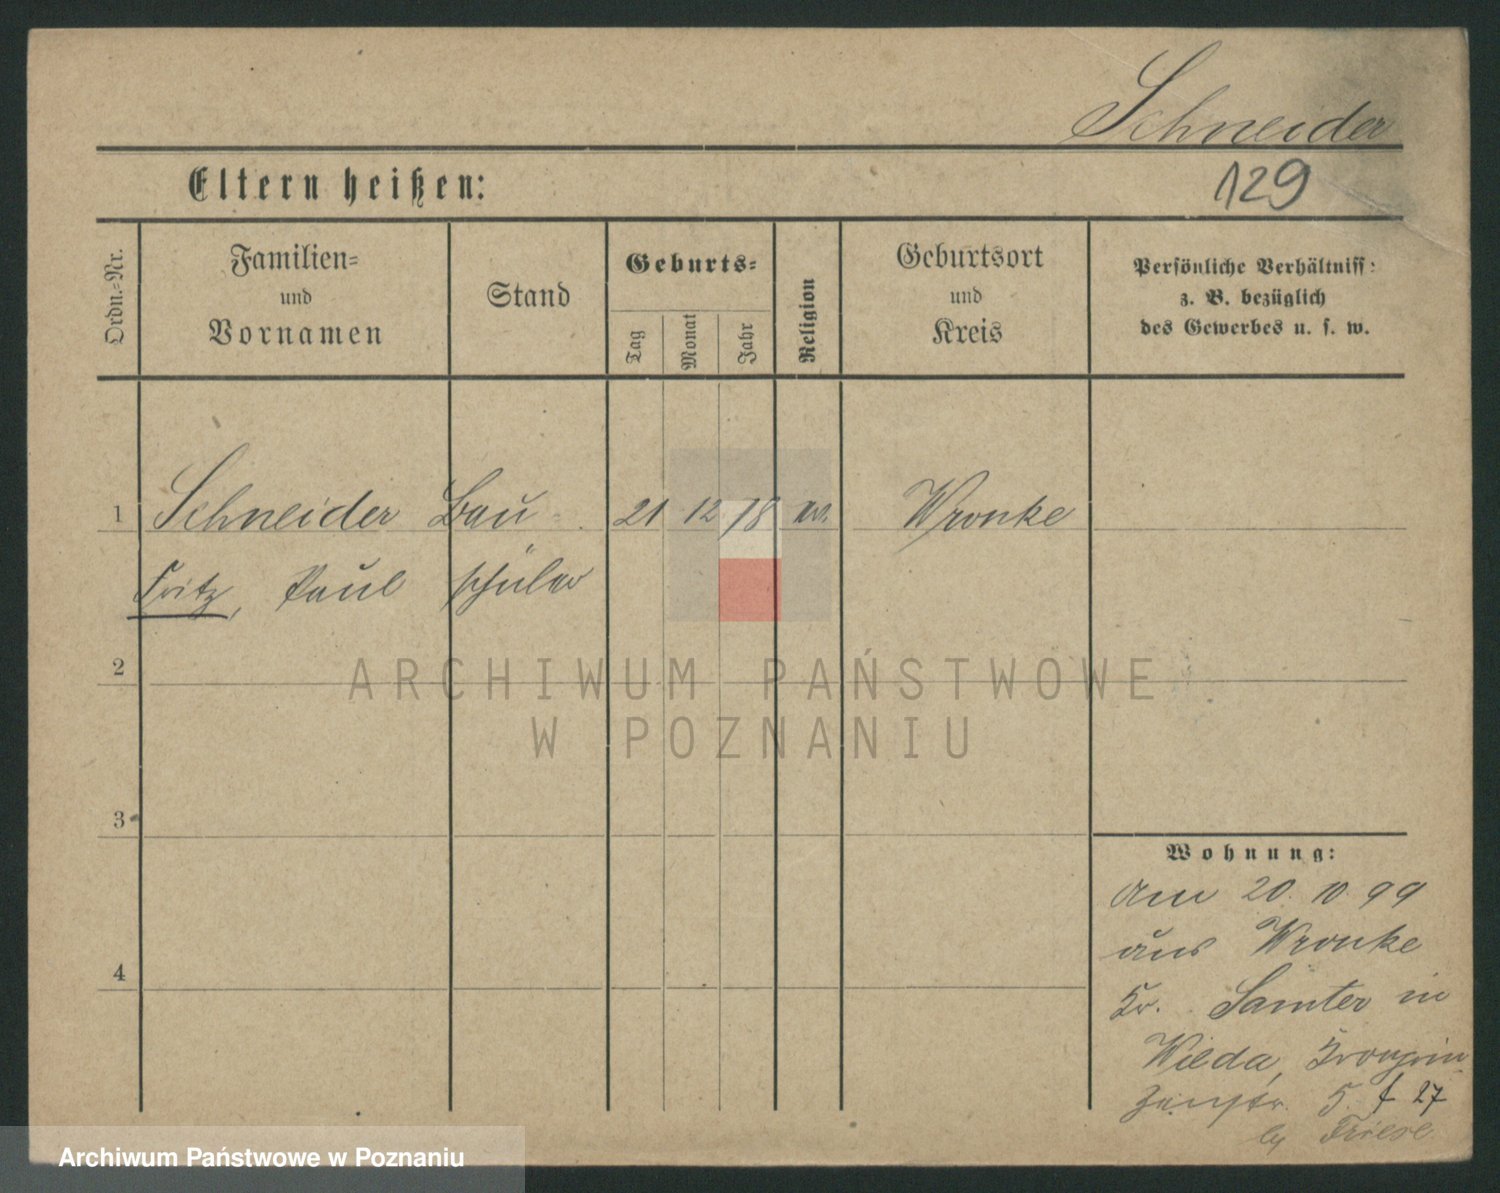 Schneider
Eltern heißen:
129
Ordn.-Nr.
Familien-
und
Vornamen
Stand
Geburts-
Tag
Monat
Jahr
Religion
Geburtsort
und
Kreis
Persönliche Verhältniss:
z. B. bezüglich
des Gewerbes u. s. w.
1 Schneider Bau- 21 12 78 ev. Wronke
Fritz, Paul schüler
2
ARCHIWUM PAŃSTWOWE
W POZNANIU
3
4
Wohnung:
Am 20. 10. 99
aus Wronke
Kr. Samter in
Wilda, Kronprin
zenstr. 5 f 27
by Friese
Archiwum Państwowe w Poznaniu